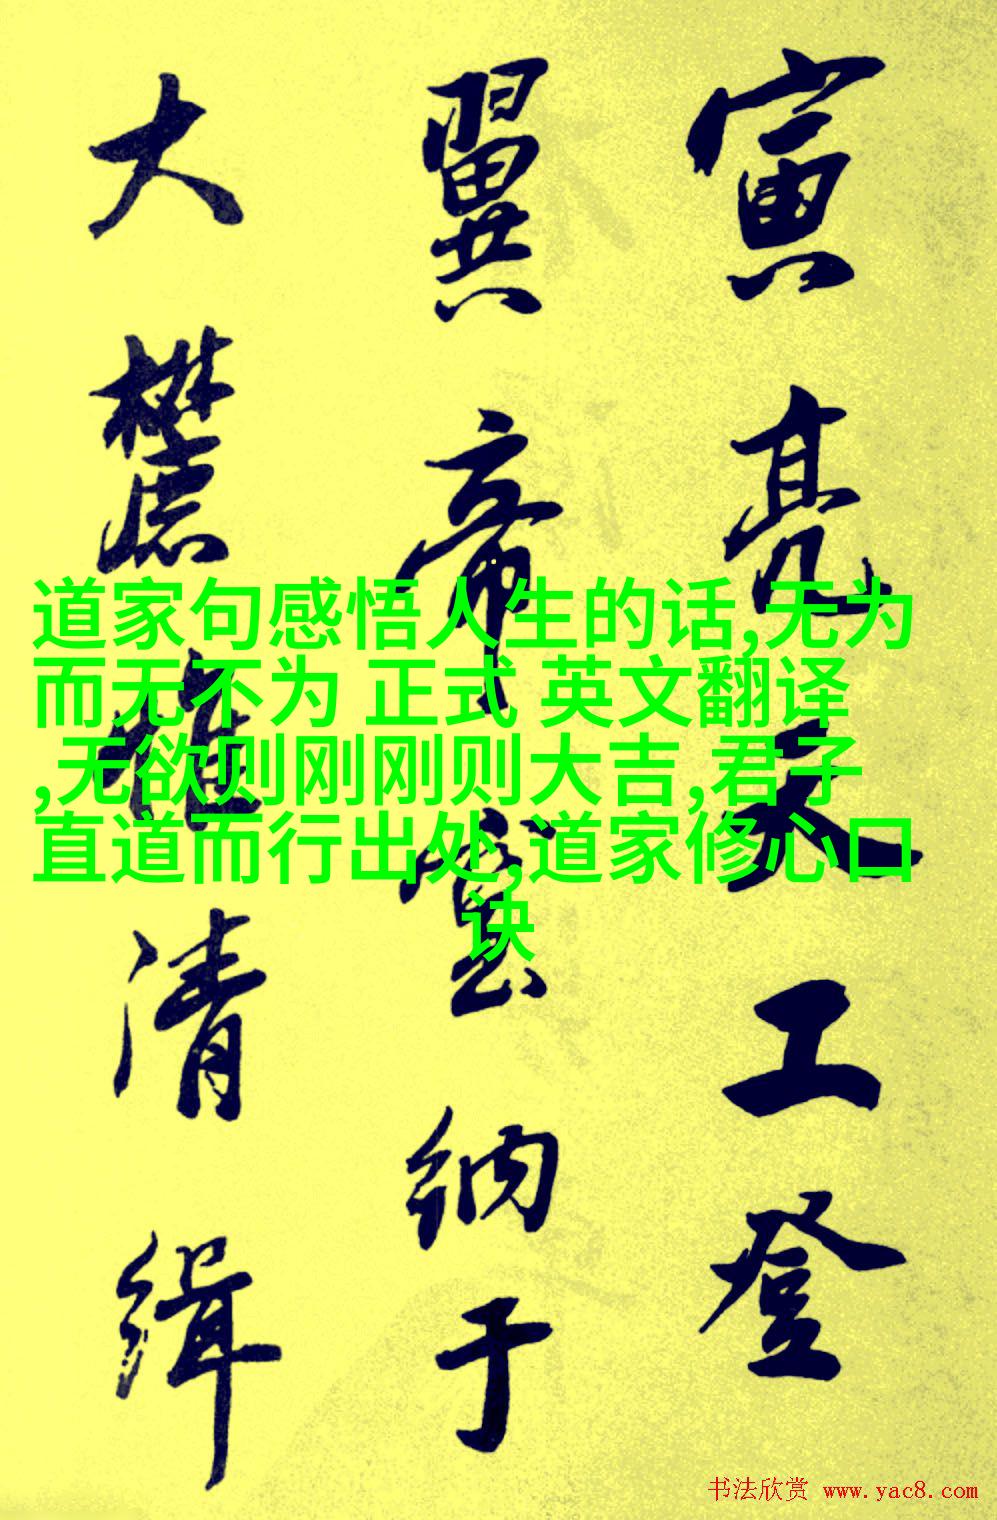 寅亮天工登
翼帝室纳于
大麓惟清缉
道家句感悟人生的话,无为
而无不为 正式 英文翻译
,无欲则刚刚则大吉,君子
直道而行出处,道家修心口
诀
书法欣赏 www.yac8.com